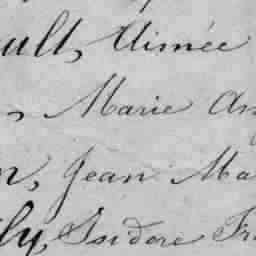 ult, Aimée
Marie An
n, Jean Ma
ly, Isidore Fr